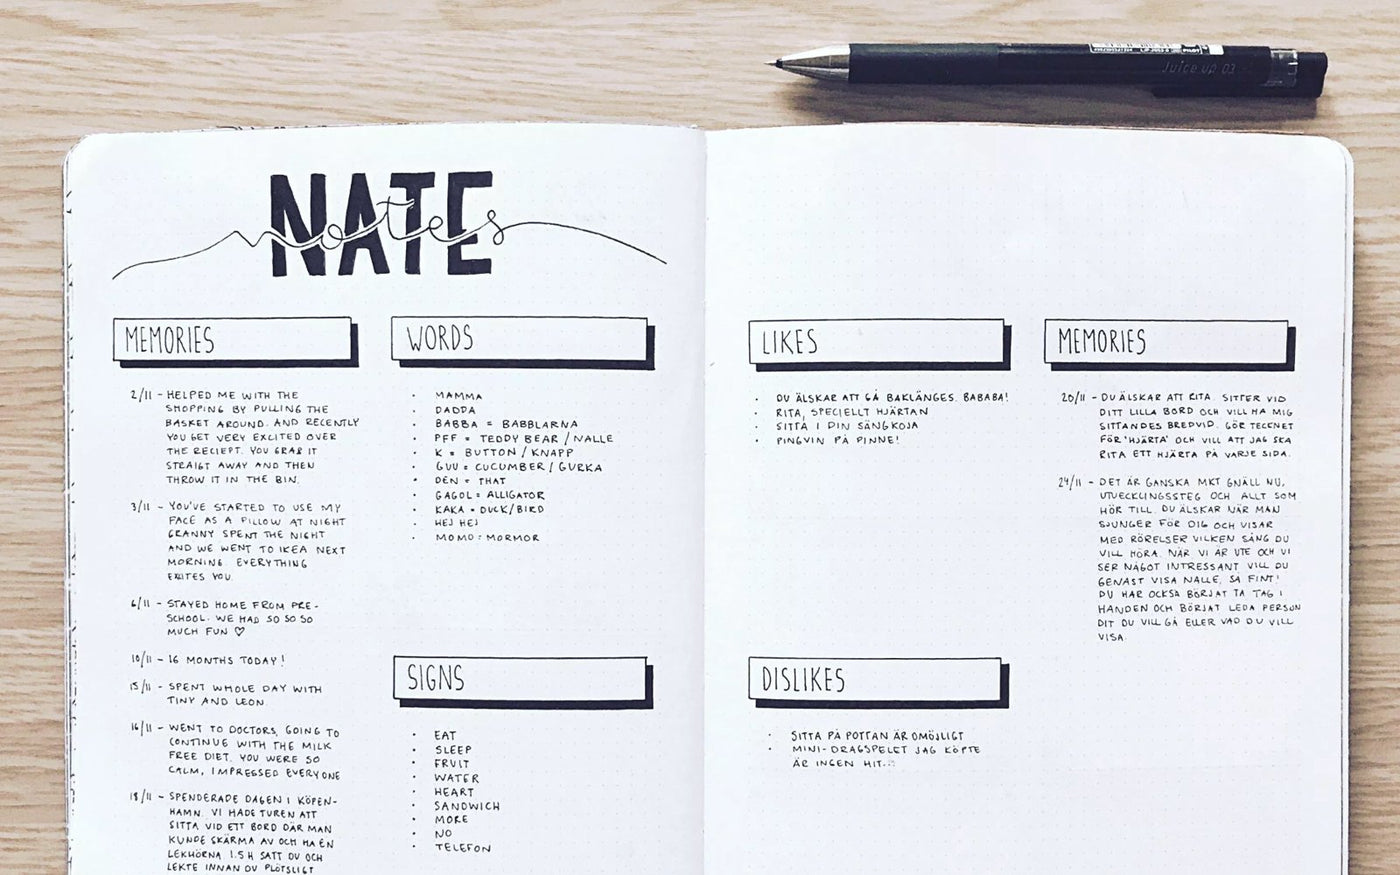 Juice up 03
NATE
notes
MEMORIES
2/11 - HELPED ME WITH THE
SHOPPING BY PULLING THE
BASKET AROUND. AND RECENTLY
YOU GET VERY EXCITED OVER
THE RECIEPT. YOU GRAB IT
STRAIGT AWAY AND THEN
THROW IT IN THE BIN.
3/11 - YOU'VE STARTED TO USE MY
FACE AS A PILLOW AT NIGHT
GRANNY SPENT THE NIGHT
AND WE WENT TO IKEA NEXT
MORNING. EVERYTHING
EXITES YOU.
6/11 - STAYED HOME FROM PRE-
SCHOOL. WE HAD SO SO SO
MUCH FUN ♡
10/11 - 16 MONTHS TODAY!
15/11 - SPENT WHOLE DAY WITH
TINY AND LEON.
16/11 - WENT TO DOCTORS, GOING TO
CONTINUE WITH THE MILK
FREE DIET. YOU WERE SO
CALM, IMPRESSED EVERYONE
18/11 - SPENDERADE DAGEN I KÖPEN-
HAMN. VI HADE TUREN ATT
SITTA VID ETT BORD DÄR MAN
KUNDE SKÄRMA AV OCH HA EN
LEKHÖRNA. 1.5 H SATT DU OCH
LEKTE INNAN DU PLÖTSLIGT
WORDS
· MAMMA
· DADDA
· BABBA = BABBLARNA
· PFF = TEDDY BEAR / NALLE
· K = BUTTON / KNAPP
· GUU = CUCUMBER / GURKA
· DEN = THAT
· GAGOL = ALLIGATOR
· KAKA = DUCK/BIRD
· HEJ HEJ
· MOMO = MORMOR
SIGNS
· EAT
· SLEEP
· FRUIT
· WATER
· HEART
· SANDWICH
· MORE
· NO
· TELEFON
LIKES
· DU ÄLSKAR ATT GÅ BAKLÄNGES. BABABA!
· RITA, SPECIELLT HJÄRTAN
· SITTA I DIN SÄNGKOJA
· PINGVIN PÅ PINNE!
DISLIKES
· SITTA PÅ POTTAN ÄR OMÖJLIGT
· MINI-DRAGSPELET JAG KÖPTE
ÄR INGEN HIT.
MEMORIES
20/11 - DU ÄLSKAR ATT RITA. SITTER VID
DITT LILLA BORD OCH VILL HA MIG
SITTANDES BREDVID. GÖR TECKNET
FÖR 'HJÄRTA' OCH VILL ATT JAG SKA
RITA ETT HJÄRTA PÅ VARJE SIDA.
24/11 - DET ÄR GANSKA MKT GNÄLL NU,
UTVECKLINGSSTEG OCH ALLT SOM
HÖR TILL. DU ÄLSKAR NÄR MAN
SJUNGER FÖR DIG OCH VISAR
MED RÖRELSER VILKEN SÅNG DU
VILL HÖRA. NÄR VI ÄR UTE OCH VI
SER NÅGOT INTRESSANT VILL DU
GENAST VISA NALLE, SÅ FINT!
DU HAR OCKSÅ BÖRJAT TA TAG I
HANDEN OCH BÖRJAT LEDA PERSON
DIT DU VILL GÅ ELLER VAD DU VILL
VISA.